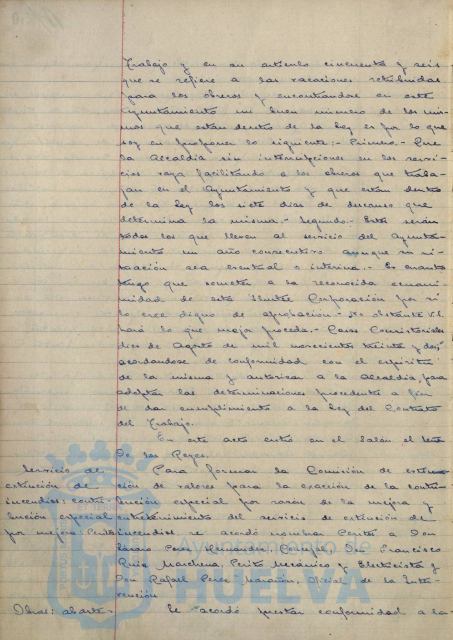 Trabajo y en su artículo cincuenta y seis
que se refiere a las vacaciones retribuidas
para los obreros y encontrándose en este
Ayuntamiento un buen número de los mis-
mos que están dentro de la Ley es por lo que
soy en proponer lo siguiente:- Primero.- Que
la Alcaldía sin interrupciones en los servi-
cios vaya facilitando a los obreros que traba-
jan en el Ayuntamiento y que están dentro
de la Ley los siete días de descanso que
determina la misma.- Segundo.- Estos serán
todos los que lleven al servicio del Ayunta-
miento un año consecutivo aunque su si-
tuación sea eventual o interina.- Es cuanto
tengo que someter a la reconocida ecuani-
midad de esta Ilustre Corporación por si
lo cree digno de aprobación.- No obstante V.E.
hará lo que mejor proceda.- Casas Consistoriales
diez de Agosto de mil novecientos treinta y dos;
acordándose de conformidad con el espíritu
de la misma y autorizar a la Alcaldía, para
adoptar las determinaciones procedentes a fin
de dar cumplimiento a la Ley del Contrato
del Trabajo.
En este acto entró en el Salón el
De los Reyes.
Servicio de
extinción de
incendios: contri-
bución especial
por mejora: Perito
Para formar la Comisión de
ción de valores para la exacción de la contri-
bución especial por razón de la mejora y
entretenimiento del servicio de extinción de
incendios, se acordó nombrar Peritos a Don
Hernández, Don Francisco
Ruiz Marchena, Perito Mecánico y Electricista y
Don Rafael Pérez Oficial de la Inter-
vención
Obras: abaste-
Se acordó prestar conformidad a la
Ayuntamiento de
HUELVA